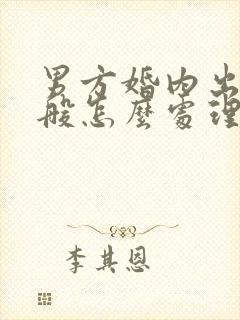 男方婚内出
般怎麼處理
李其恩